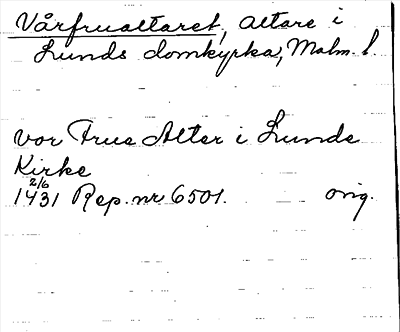 Vårfrualtaret, altare i
Lunds domkyrka, Malm. l.
vor Frue Alter i Lunde
Kirke
2/6
1431 Rep. nr 6501. orig.